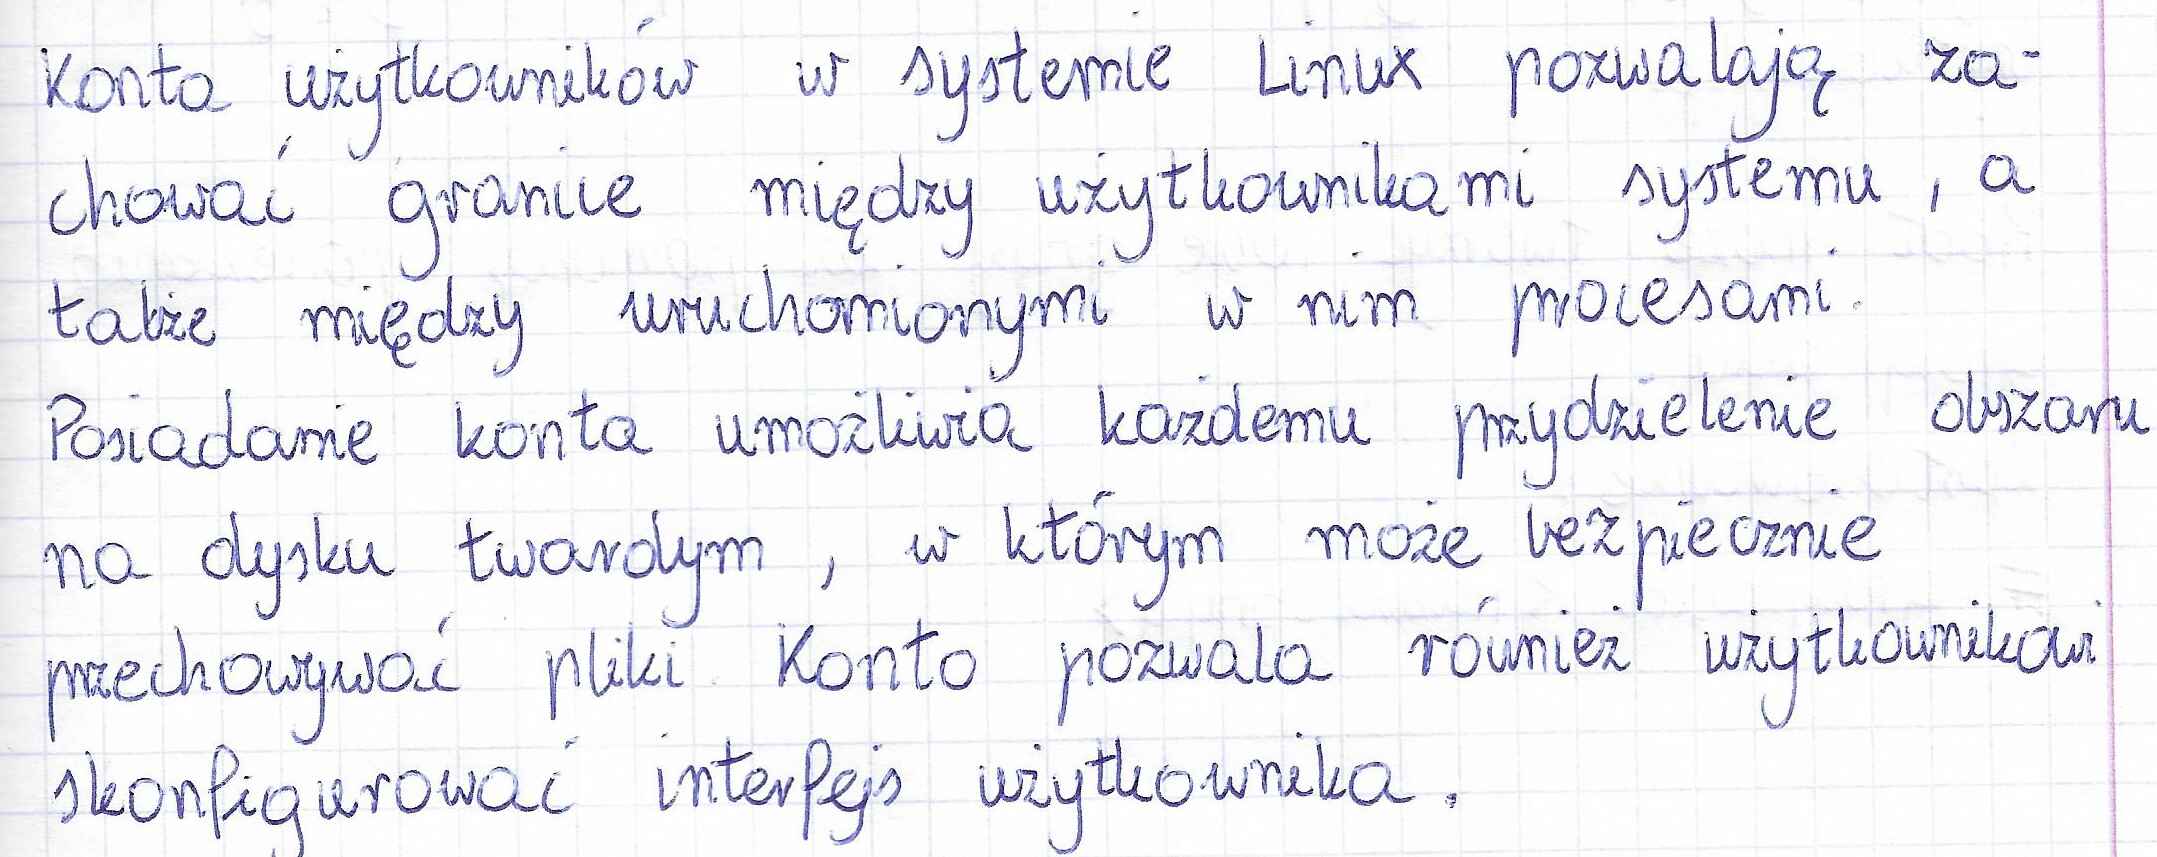 Konta użytkowników w systemie Linux pozwalają za-
chować granice między użytkownikami systemu, a
także między uruchomionymi w nim procesami.
Posiadanie konta umożliwia każdemu przydzielenie obszaru
na dysku twardym, w którym może bezpiecznie
przechowywać pliki. Konto pozwala również użytkownikowi
skonfigurować interfejs użytkownika.